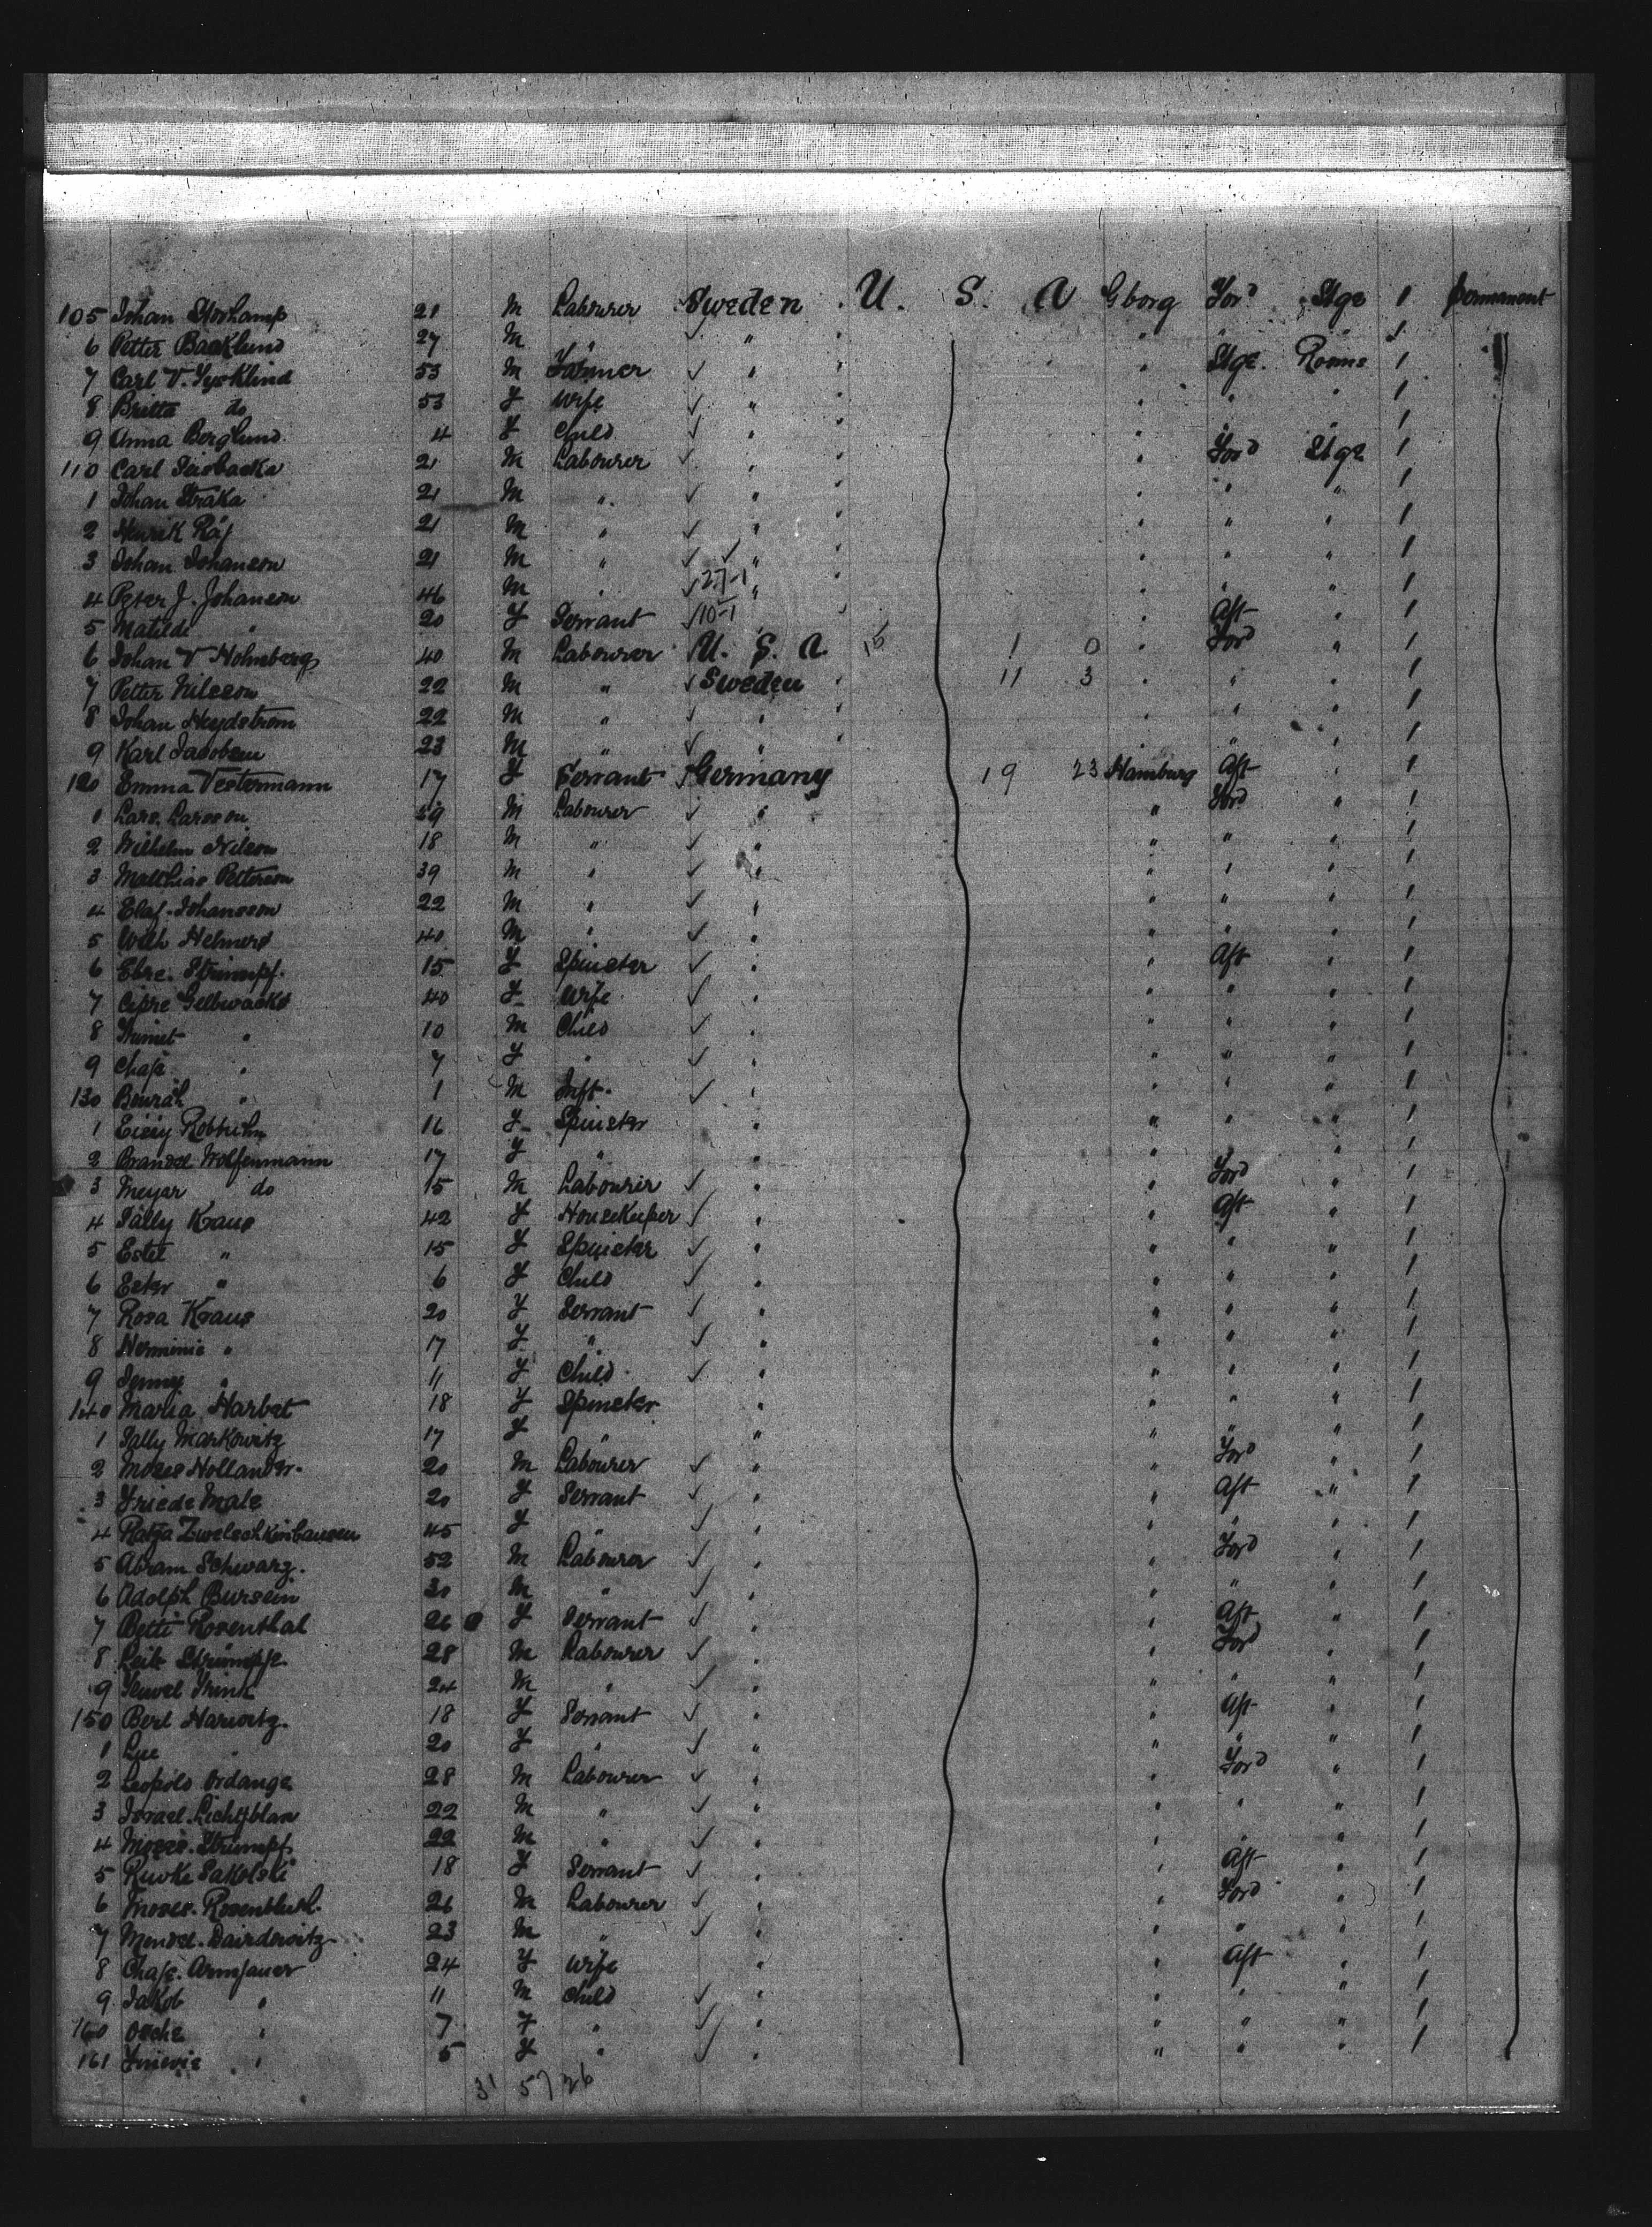 105 Johan Storkamp 21 M Labourer Sweden U. S. A Gborg Ford Stge 1 permanent
6 Petter Backlund 27 M " " " " " 1
7 Carl V. Fyrklind 53 M Farmer " " Stge. Rooms 1
8 Britta do 53 F Wife " " " " 1
9 Anna Berglund 4 F Child " " " " 1
110 Carl 21 M Labourer " " Ford Stge 1
1 Johan Straka 21 M " " " " " 1
2 Henrik Räf 21 M " " " " " 1
3 Johan Johanson 21 M " " " " " 1
4 Peter J. Johanson 46 M " 27-1 " " " " 1
5 Matilde " 20 F Servant 10-1 " " Aft " 1
6 Johan V Holmberg 40 M Labourer U. S. A 15 1 0 " Ford " 1
7 Petter Nilsson 22 M " Sweden 11 3 " " " 1
8 Johan Heydstrom 22 M " " " " " 1
9 Karl Jacobsen 23 M " " " " " 1
120 Emma Vestermann 17 F Servant Germany 19 23 Hamburg Aft " 1
1 Lars. Larsson 59 M Labourer " " Ford " 1
2 Wilhelm Nilson 18 M " " " " " 1
3 Matthias Petterson 39 M " " " " " 1
4 Elaf. Johansson 22 M " " " " " 1
5 Wilh Helmers 40 M " " " " " 1
6 Ebre. Strumpf. 15 F Spinster " " Aft " 1
7 Cipre Gelbwachs 40 F Wife " " " " 1
8 " 10 M Child " " " " 1
9 Chaje " 7 F " " " " " 1
130 " 1 M Inft. " " " " 1
1 16 F Spinster " " " " 1
2 Brandel Wolfenmann 17 F " " " " " 1
3 Meyer do 15 M Labourer " " Ford " 1
4 Sally Kraus 42 F Housekeeper " " Aft " 1
5 Estel " 15 F Spinster " " " " 1
6 Ester " 6 F Child " " " " 1
7 Rosa Kraus 20 F Servant " " " " 1
8 Herminie " 17 F " " " " " 1
9 Jenny " 11 F Child " " " " 1
140 Maria Harbat 18 F Spinster " " " " 1
1 Sally Markowitz 17 F " " " " " 1
2 Moses Hollander. 20 M Labourer " " Ford " 1
3 Friede Male 20 F Servant " " Aft " 1
4 Ratza 45 F " " " " " 1
5 Abram Schwarz. 52 M Labourer " " Ford " 1
6 Adolph Bursein 30 M " " " " " 1
7 Betti Rosenthal 26 F Servant " " Aft " 1
8 Leib Strumpf 28 M Labourer " " Ford " 1
9 24 M " " " " " 1
150 Berl Harwitz. 18 F Servant " " Aft " 1
1 " 20 F " " " " " 1
2 Leopold Ordange 28 M Labourer " " Ford " 1
3 Israel. Lichtblau 22 M " " " " " 1
4 Moses. Strumpf 22 M " " " " " 1
5 Riwke Sakolski 18 F Servant " " Aft " 1
6 Moses. 26 M Labourer " " Ford " 1
7 Mendel. 23 M " " " " " 1
8 Chaje. Armfauer 24 F Wife " " Aft " 1
9 Jakob " 11 M Child " " " " 1
160 Osche " 7 F " " " " " 1
161 " 5 F " " " " " 1
31 57 26